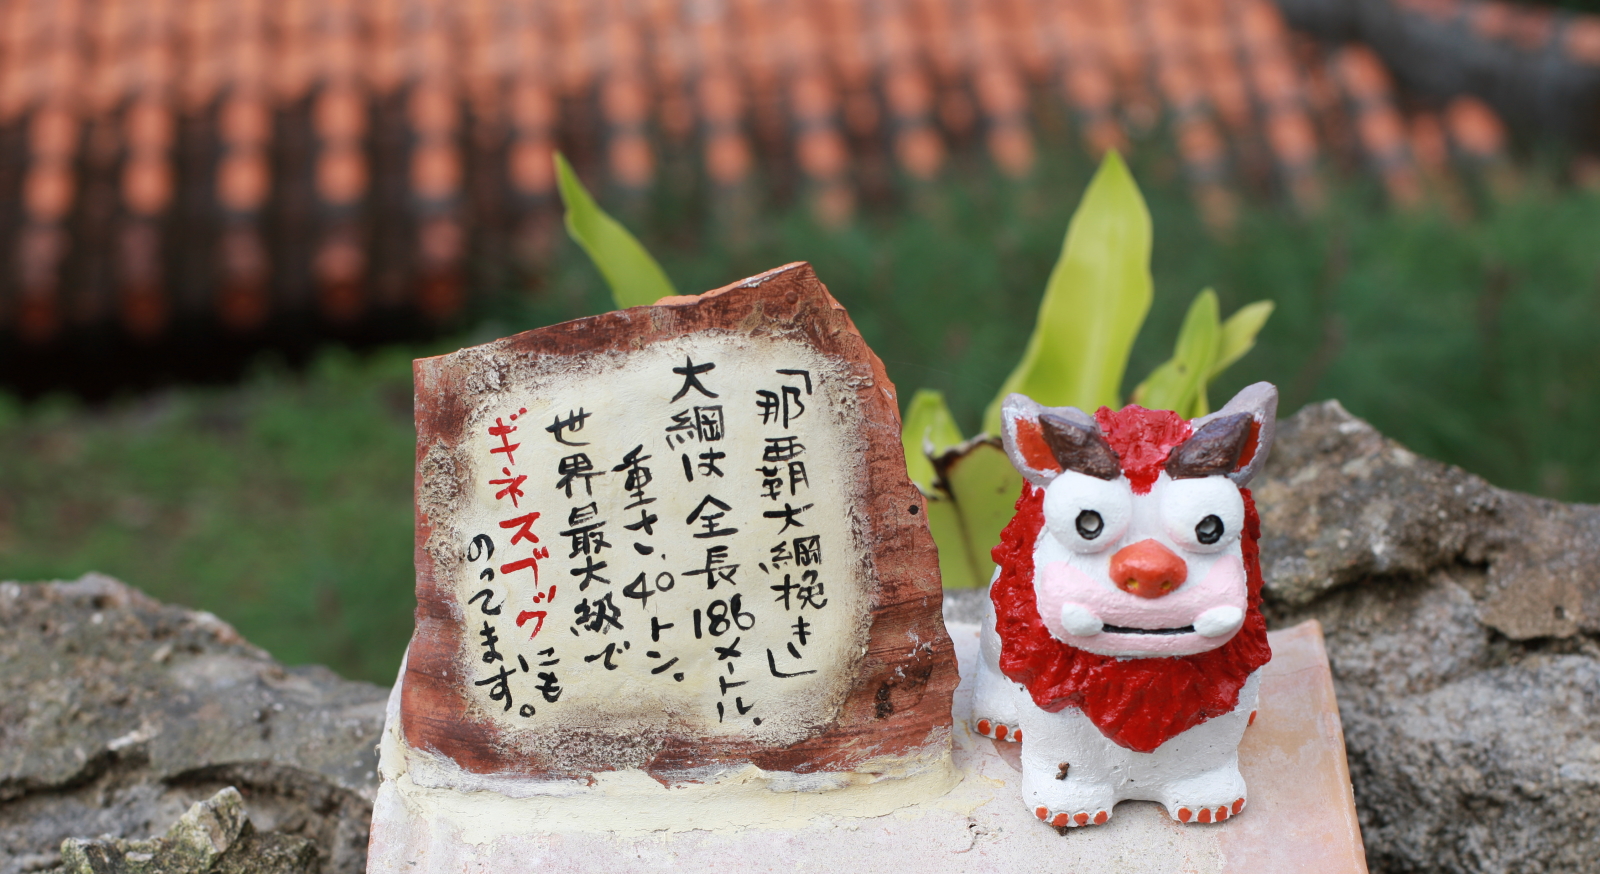 「那覇大綱挽き」
大綱は全長186メートル、
重さ、40トン。
世界最大級で
ギネスブックにも
のってます。